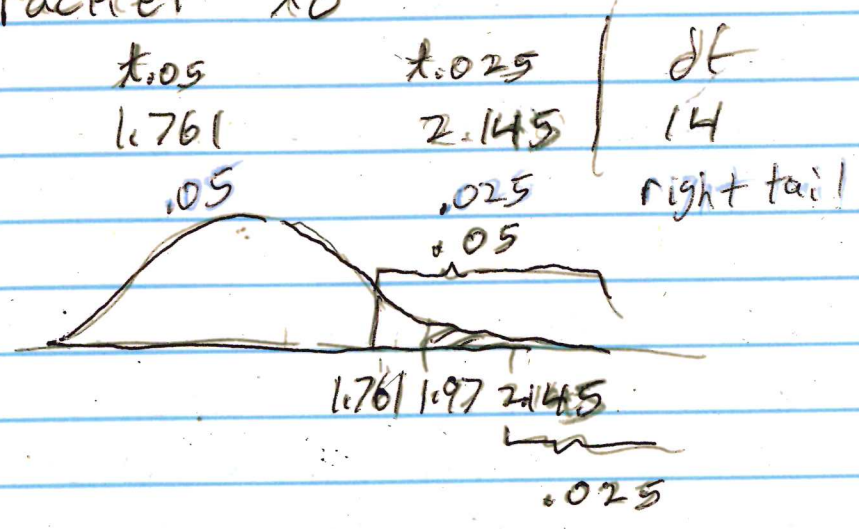 t.05 t.025 df
1.761 2.145 14
.05 .025 right tail
.05
1.761 1.97 2.145
.025